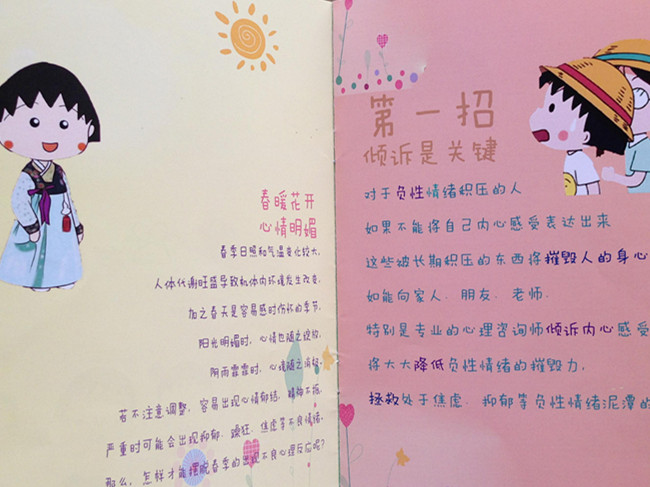 春暖花开
心情明媚
春季日照和气温变化较大,
人体代谢旺盛导致机体内环境发生改变,
加之春天是容易感时伤怀的季节,
阳光明媚时,心情也随之绽放,
阴雨霏霏时,心境随之消极,
若不注意调整,容易出现心情郁结、精神不振,
严重时可能会出现抑郁、躁狂、焦虑等不良情绪,
那么,怎样才能摆脱春季的出现不良心理反应呢?
第一招
倾诉是关键
对于负性情绪积压的人
如果不能将自己内心感受表达出来
这些被长期积压的东西将摧毁人的身心
如能向家人、朋友、老师、
特别是专业的心理咨询师倾诉内心感受
将大大降低负性情绪的摧毁力,
拯救处于焦虑、抑郁等负性情绪泥潭的